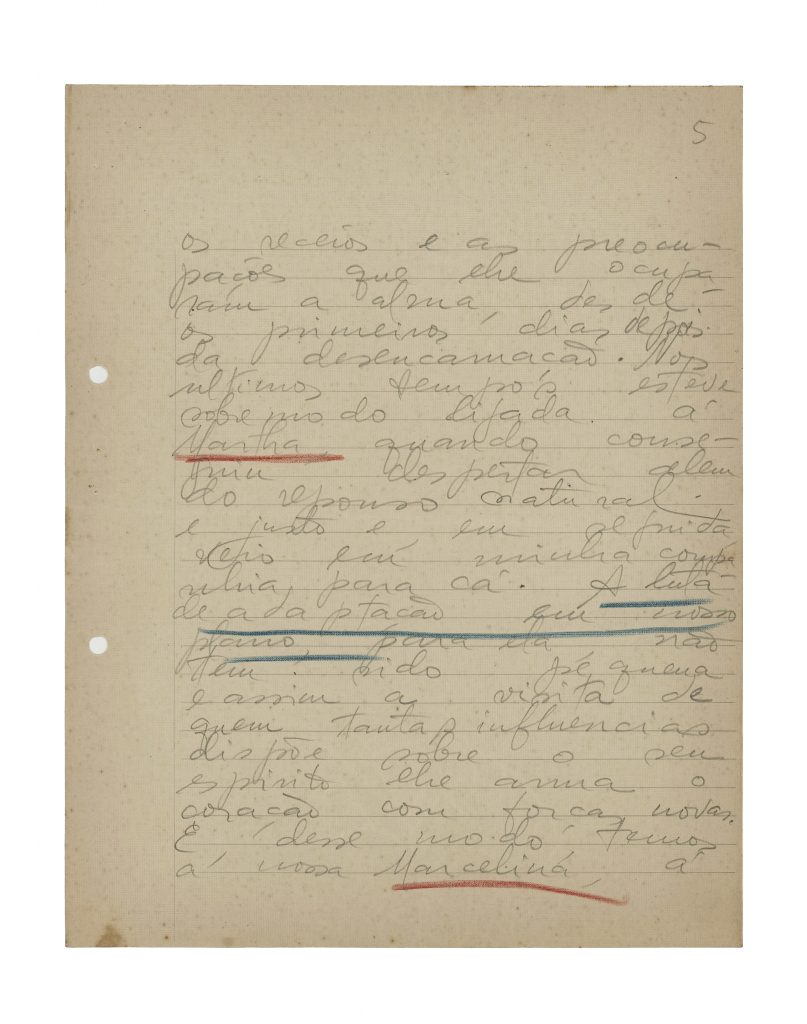 5
os receios e as preocu-
pações que lhe ocupa
ram a alma, desde
os primeiros dias depois
da desencarnação. Nos
ultimos tempos esteve
sobremodo ligada á
Martha quando conse-
guiu despertar alem
do repouso natural.
e justo e em seguida
veio em minha compa
nhia, para cá. A luta
de adaptação em nosso
plano, para ela não
tem sido pequena
e assim a visita de
quem tantas influencias
dispõe sobre o seu
espirito lhe arma o
coração com forças novas.
E desse modo temos
a nossa Marcelina, á